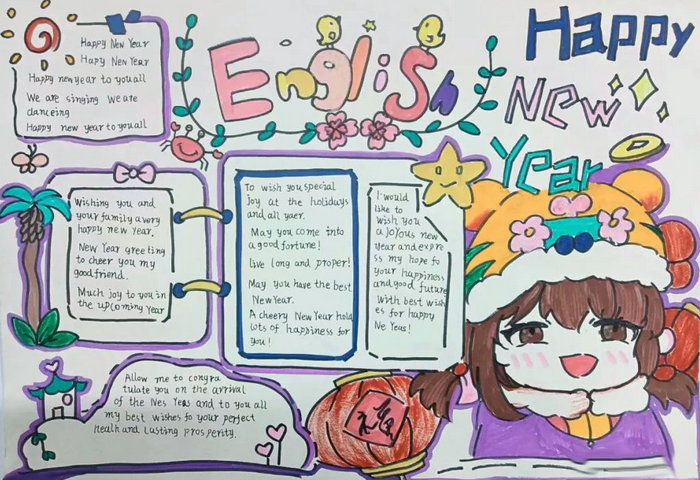 English
Happy
New
Year
Happy New Year
Hapy New Year
Happy new year to you all
We are singing we are
danceing
Happy new year to you all
Wishing you and
your family a very
happy new year.
New Year greeting
to cheer you my
good friend.
Much joy to you in
the up coming year
To wish you special
joy at the holidays
and all yaer.
May you come into
a good fortune!
live long and proper!
May you have the best
New Year.
A cheery New Year hold
lots of happiness for
you!
I would
like to
wish you
a joyous new
year and expre
ss my hope fo
your happiness
and good future
With best wish
es for happy
Ne Yeas!
Allow me to congra
tulate you on the arrival
of the Nes Yeas and to you all
my best wishes fo your perfect
healh and lasting prosperity.
福